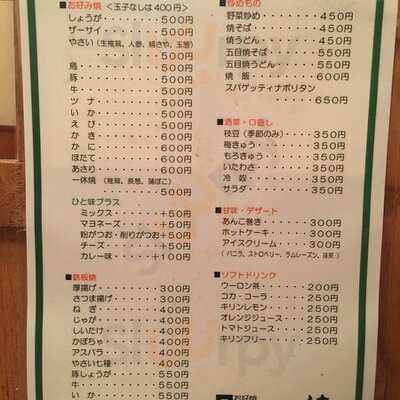 ■お好み焼 <玉子なしは400円>
しょうが・・・・・・500円
ザーサイ・・・・・・500円
やさい（生椎茸、人参、絹さや、玉葱）
・・・・・・500円
鳥・・・・・・・・500円
豚・・・・・・・・500円
牛・・・・・・・・500円
ツナ・・・・・・・500円
いか・・・・・・・500円
えび・・・・・・・500円
かき・・・・・・・600円
かに・・・・・・・600円
ほたて・・・・・・600円
あさり・・・・・・600円
一休焼（椎茸、長葱、蒲ぽこ）
・・・・・・500円
ひと味プラス
ミックス・・・・・+50円
マヨネーズ・・・・+50円
粉がつお・削りがつお+50円
チーズ・・・・・・+50円
カレー味・・・・・+100円
■鉄板焼
厚揚げ・・・・・・300円
さつま揚げ・・・・300円
ねぎ・・・・・・・400円
じゃが・・・・・・400円
しいたけ・・・・・400円
かぼちゃ・・・・・400円
アスパラ・・・・・400円
やさい七種・・・・400円
豚しょうが・・・・550円
牛・・・・・・・・550円
いか・・・・・・・550円
■炒めもの
野菜炒め・・・・・450円
焼そば・・・・・・450円
焼うどん・・・・・450円
五目焼そば・・・・550円
五目焼うどん・・・550円
焼飯・・・・・・・600円
スパゲッティナポリタン
・・・・・・650円
■酒菜・口直し
枝豆（季節のみ）・・・350円
梅きゅう・・・・・350円
もろきゅう・・・・350円
いたわさ・・・・・350円
冷奴・・・・・・・350円
サラダ・・・・・・350円
■甘味・デザート
あんこ巻き・・・・300円
ホットケーキ・・・300円
アイスクリーム・・・300円
（バニラ、ストロベリー、ラムレーズン、抹茶）
■ソフトドリンク
ウーロン茶・・・・200円
コカ・コーラ・・・250円
キリンレモン・・・250円
オレンジジュース・・・250円
トマトジュース・・・250円
キリンフリー・・・250円
お好焼